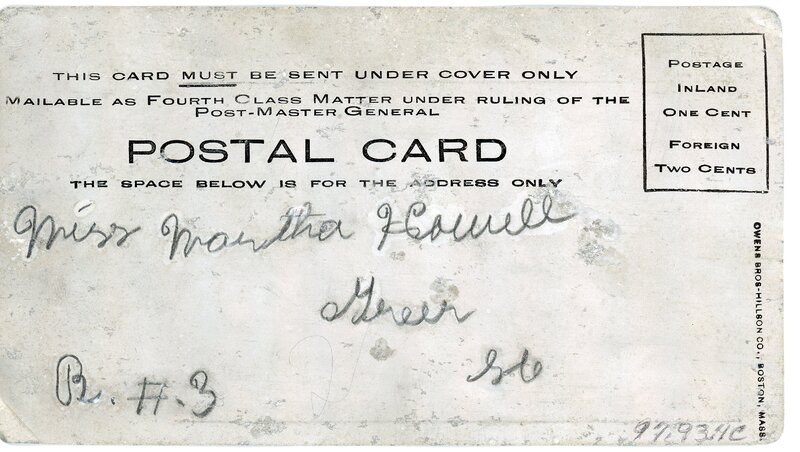 THIS CARD MUST BE SENT UNDER COVER ONLY
MAILABLE AS FOURTH CLASS MATTER UNDER RULING OF THE
POST-MASTER GENERAL
POSTAL CARD
THE SPACE BELOW IS FOR THE ADDRESS ONLY
POSTAGE
INLAND
ONE CENT
FOREIGN
TWO CENTS
Miss Martha Howell
Greer
SC
R. #. 3
OWENS BROS-HILLSON CO., BOSTON, MASS.